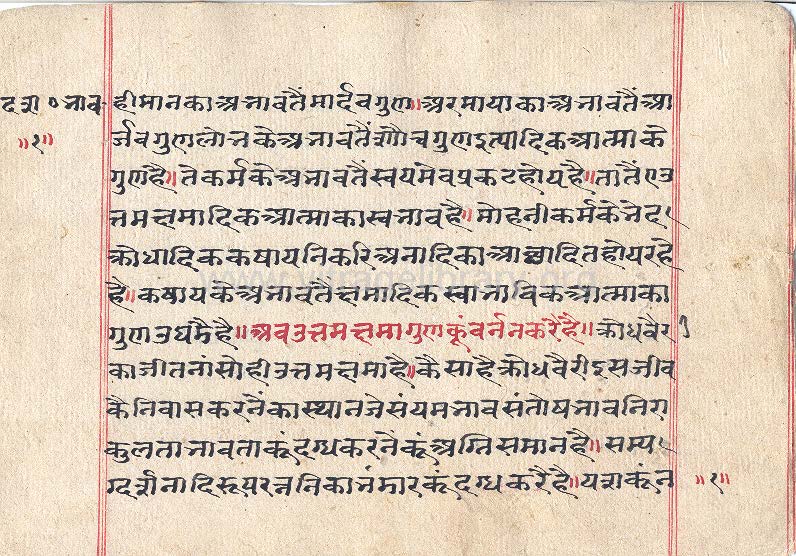 दश॰ भाव॰ ही मान का अभावतैं मार्दव गुण॥ अर माया का अभावतैं आ
॥१॥ र्जव गुण लोभ के अभावतैं शौच गुण इत्यादिक आत्मा के
गुण है॥ ते कर्म के अभावतैं स्वयमेव प्रकट होय है॥ तातैं ए उ
त्तम क्षमादिक आत्मा का स्वभाव है॥ मोहनी कर्म के भेद
क्रोधादिक कषायनि करि अनादि का आछादित होय रहे
है॥ कषाय के अभावतैं क्षमादिक स्वाभाविक आत्मा का
गुण उघडै है॥ अब उत्तम क्षमा गुण कूं वर्नन करै है॥ क्रोध वैर
का जीतनां सो ही उत्तम क्षमा है॥ कैसा है क्रोध वैरी इस जीव
कै निवास करनें का स्थान जे संयमभाव संतोषभाव निरा
कुलता भाव ता कूं दग्ध करनें कूं अग्नि समान है॥ सम्य
ग्दर्शनादि रूप रत्ननि का भंमार कूं दग्ध करै है॥ यश कूं न ॥१॥
www.vitragelibrary.org